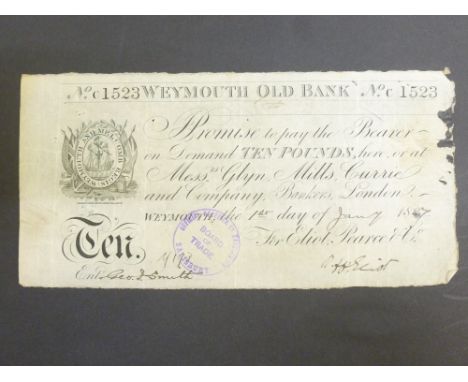 No. C 1523 WEYMOUTH OLD BANK No. C 1523
Promise to pay the Bearer
on Demand TEN POUNDS, here or at
Messrs Glyn, Mills, Currie
and Company, Bankers, London.
WEYMOUTH the 1st day of Jany
For Eliot, Pearce & Co.
Ten.
BOARD
OF
TRADE
Entd Geo. J. Smith
Eliot